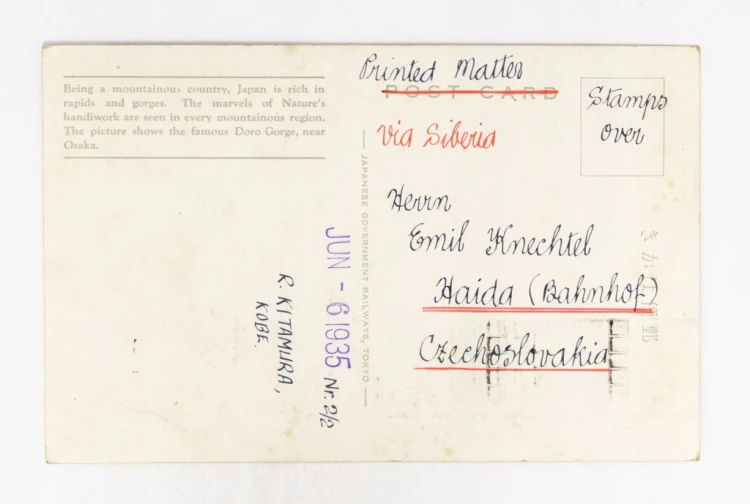 Being a mountainous country, Japan is rich in
rapids and gorges. The marvels of Nature's
handiwork are seen in every mountainous region.
The picture shows the famous Doro Gorge, near
Osaka.
Printed Matter
POST CARD
Stamps
over
via Siberia
Herrn
Emil Knechtel
Haida (Bahnhof)
Czechoslovakia
JAPANESE GOVERNMENT RAILWAYS, TOKYO
JUN - 6 1935 Nr. 2/2
R. KITAMURA,
KOBE.